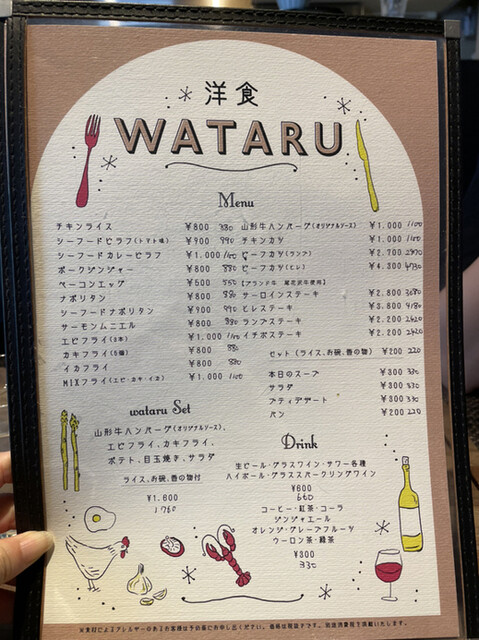 洋食
WATARU
Menu
チキンライス ¥800 880
シーフードピラフ(トマト味) ¥900 990
シーフードカレーピラフ ¥1.000 1100
ポークジンジャー ¥800 880
ベーコンエッグ ¥500 550
ナポリタン ¥800 880
シーフードナポリタン ¥900 990
サーモンムニエル ¥800 880
エビフライ(3本) ¥1.000 1100
カキフライ(5個) ¥800 880
イカフライ ¥800 880
MIXフライ(エビ・カキ・イカ) ¥1.000 1100
山形牛ハンバーグ(オリジナルソース) ¥1.000 1100
チキンカツ ¥1.000 1100
ビーフカツ(ランプ) ¥2.700 2970
ビーフカツ(ヒレ) ¥4.300 4730
【ブランド牛 尾花沢牛使用】
サーロインステーキ ¥2.800 3080
ヒレステーキ ¥3.800 4180
ランプステーキ ¥2.200 2420
イチボステーキ ¥2.200 2420
セット (ライス、お碗、香の物) ¥200 220
本日のスープ ¥300 330
サラダ ¥300 330
プティデザート ¥300 330
パン ¥200 220
wataru Set
山形牛ハンバーグ(オリジナルソース)、
エビフライ、カキフライ、
ポテト、目玉焼き、サラダ
ライス、お碗、香の物付
¥1.600
1760
Drink
生ビール・グラスワイン・サワー各種
ハイボール・グラススパークリングワイン
¥600
660
コーヒー・紅茶・コーラ
ジンジャエール
オレンジ・グレープフルーツ
ウーロン茶・緑茶
¥300
330
※食材によるアレルギーのあるお客様は予め係にお申し出ください。価格は税抜です。別途消費税を頂戴いたします。